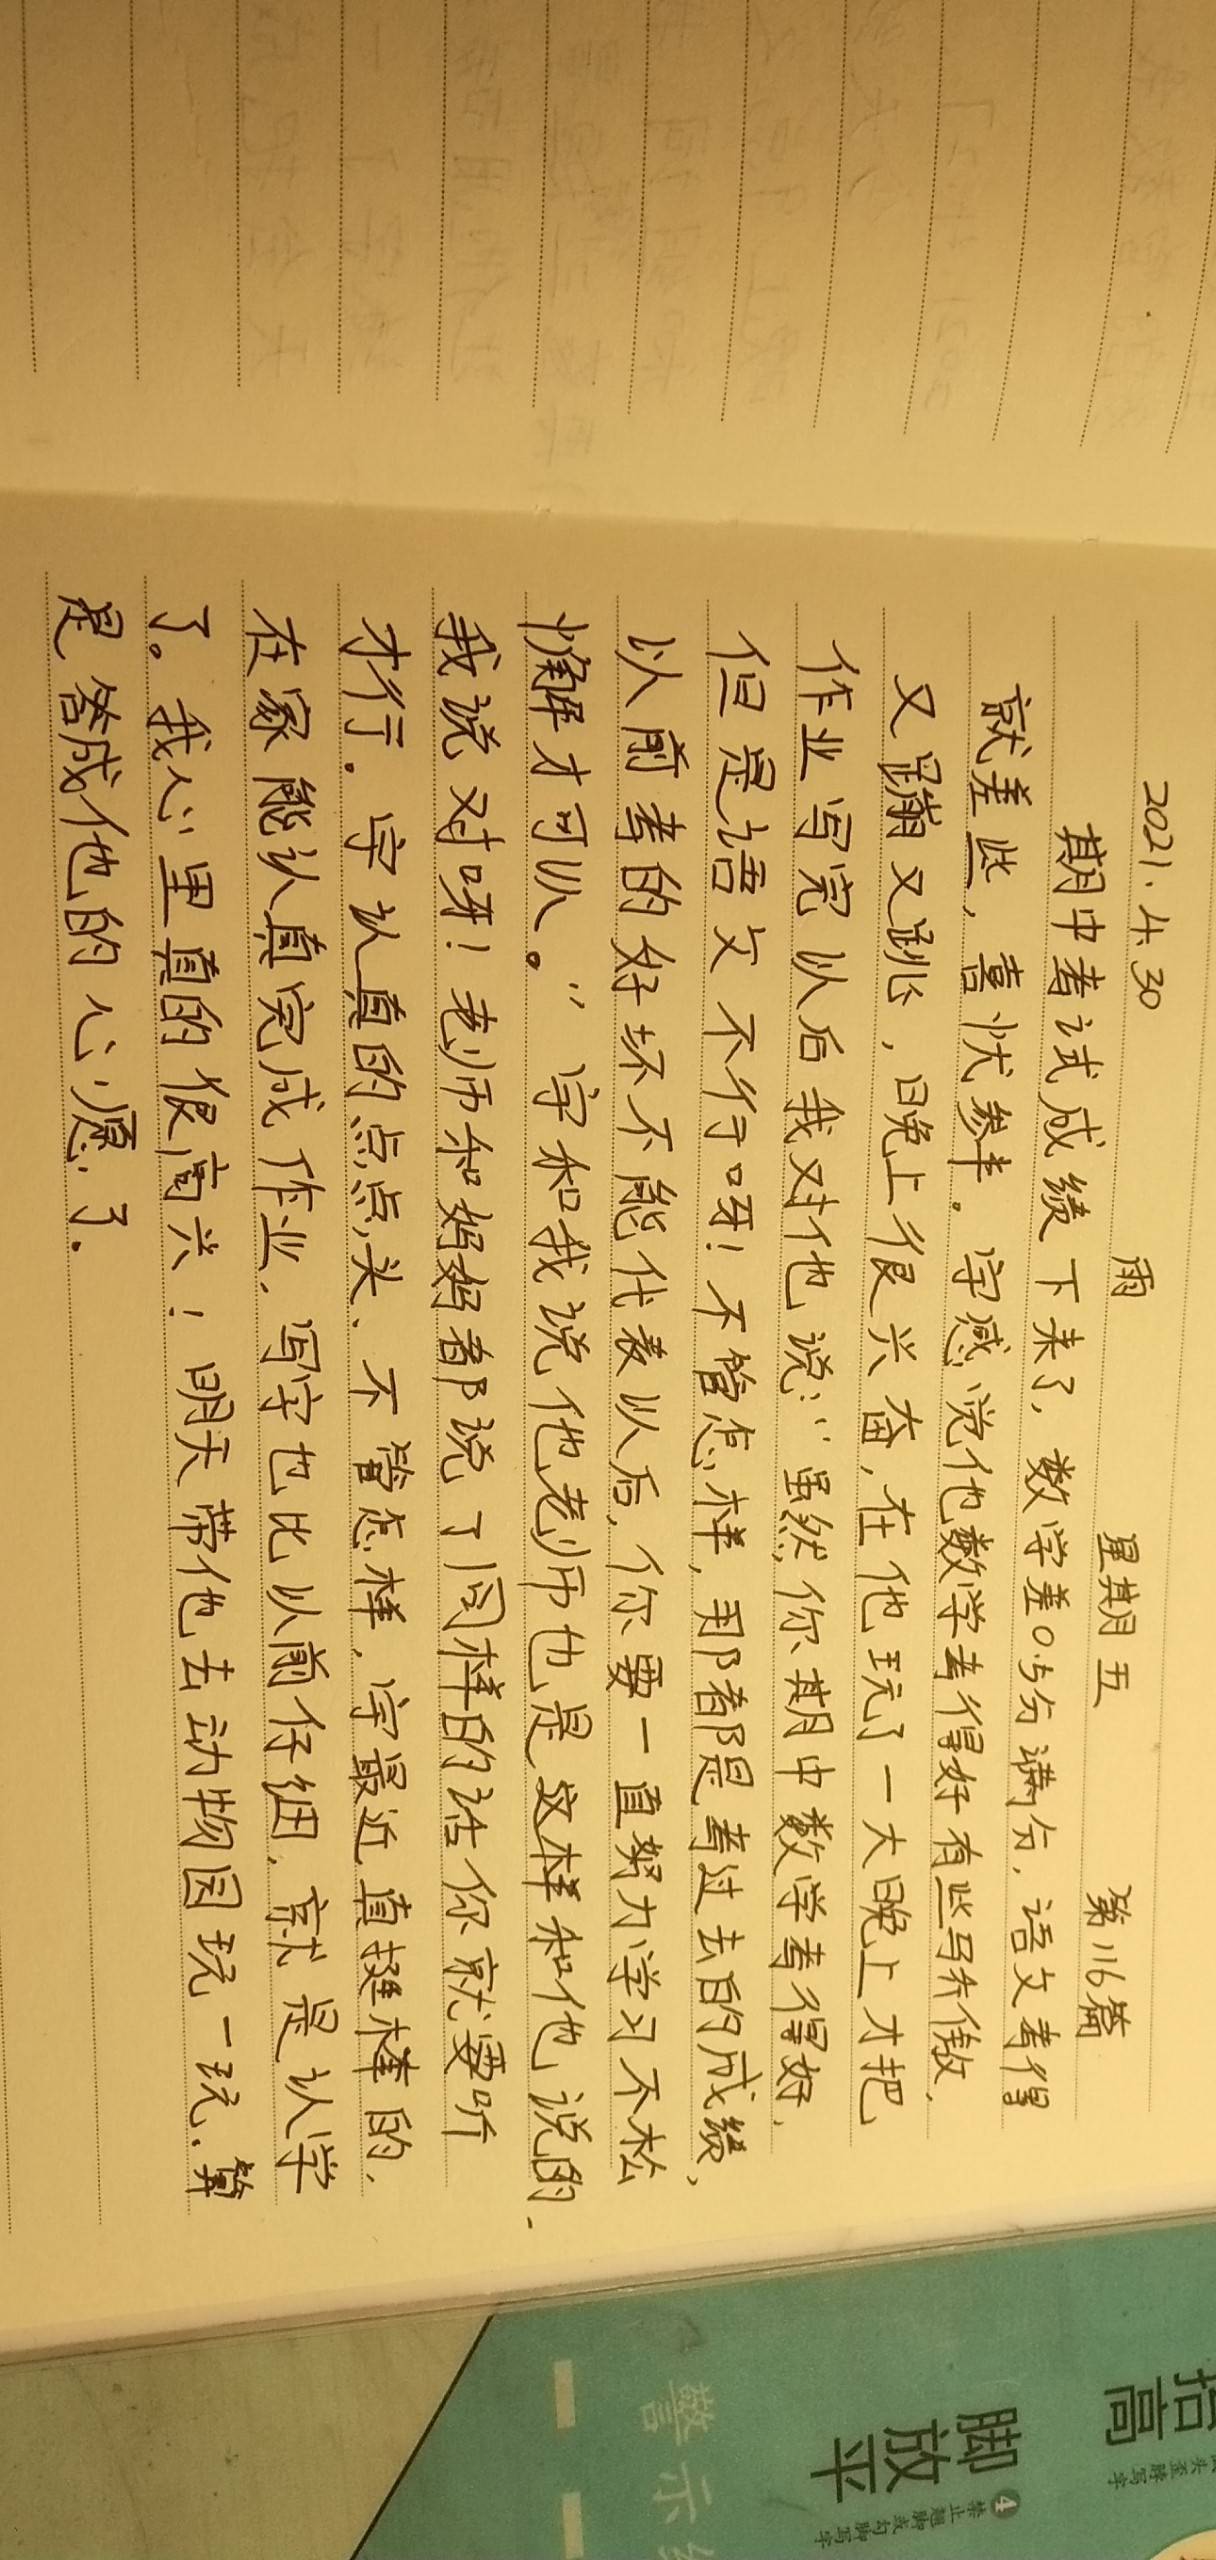 2021.4.30 雨 星期五 第116篇
期中考试成绩下来了，数学差0.5分满分，语文考得
就差些，喜忧参半。宇感觉他数学考得好有些骄傲，
又蹦又跳，晚上很兴奋，在他玩了一大晚上才把
作业写完以后我对他说：“虽然你期中数学考得好，
但是语文不行呀！不管怎样，那都是考过去的成绩，
以前考的好坏不能代表以后，你要一直努力学习不松
懈才可以。”宇和我说他老师也是这样和他说的.
我说对呀！老师和妈妈都说了同样的话你就要听
才行。宇认真的点点头、不管怎样，宇最近真挺棒的，
在家能认真完成作业，写字也比以前仔细，就是认学
了。我心里真的很高兴；明天带他去动物园玩一玩，算
是答成他的心愿了.
抬高
脚放平
4 禁止翘脚或勾脚写字
警示